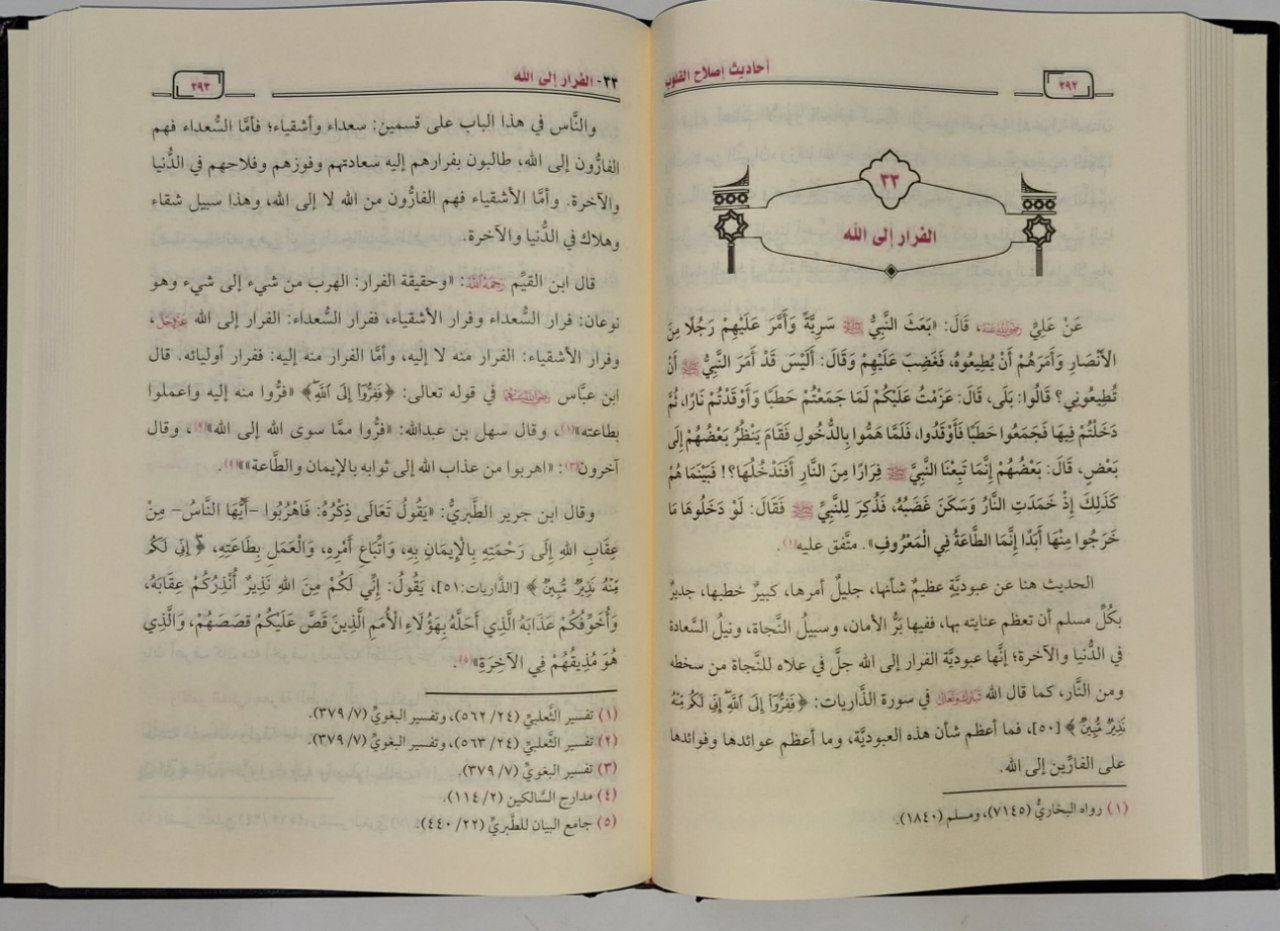 ٣٩٢
أحاديث إصلاح القلوب
٣٣
الفرار إلى الله
عَنْ عَلِيٍّ رَضِيَ اللَّهُ عَنْهُ، قَالَ: «بَعَثَ النَّبِيُّ ﷺ سَرِيَّةً وَأَمَّرَ عَلَيْهِمْ رَجُلًا مِنَ
الْأَنْصَارِ وَأَمَرَهُمْ أَنْ يُطِيعُوهُ، فَغَضِبَ عَلَيْهِمْ وَقَالَ: أَلَيْسَ قَدْ أَمَرَ النَّبِيُّ ﷺ أَنْ
تُطِيعُونِي؟ قَالُوا: بَلَى، قَالَ: عَزَمْتُ عَلَيْكُمْ لَمَا جَمَعْتُمْ حَطَبًا وَأَوْقَدْتُمْ نَارًا، ثُمَّ
دَخَلْتُمْ فِيهَا فَجَمَعُوا حَطَبًا فَأَوْقَدُوا، فَلَمَّا هَمُّوا بِالدُّخُولِ فَقَامَ يَنْظُرُ بَعْضُهُمْ إِلَى
بَعْضٍ، قَالَ: بَعْضُهُمْ إِنَّمَا تَبِعْنَا النَّبِيَّ ﷺ فِرَارًا مِنَ النَّارِ أَفَنَدْخُلُهَا؟! فَبَيْنَمَا هُمْ
كَذَلِكَ إِذْ خَمَدَتِ النَّارُ وَسَكَنَ غَضَبُهُ، فَذُكِرَ لِلنَّبِيِّ ﷺ فَقَالَ: لَوْ دَخَلُوهَا مَا
خَرَجُوا مِنْهَا أَبَدًا إِنَّمَا الطَّاعَةُ فِي الْمَعْرُوفِ». متَّفق عليه(١).
الحديث هنا عن عبوديَّةٍ عظيمٌ شأنها، جليلٌ أمرها، كبيرٌ خطبها، جديرٌ
بكُلِّ مسلم أن تعظم عنايته بها، ففيها بَرُّ الأمان، وسبيلُ النَّجاة، ونيلُ السَّعادة
في الدُّنيا والآخرة؛ إنَّها عبوديَّة الفرار إلى الله جلَّ في علاه للنَّجاة من سخطه
ومن النَّار، كما قال الله تَبَارَكَ وَتَعَالَى في سورة الذَّاريات: ﴿فَفِرُّوٓاْ إِلَى ٱللَّهِۖ إِنِّي لَكُم مِّنۡهُ
نَذِيرٞ مُّبِينٞ﴾ [٥٠]، فما أعظم شأن هذه العبوديَّة، وما أعظم عوائدها وفوائدها
على الفارِّين إلى الله.
(١) رواه البخاريُّ (٧١٤٥)، ومسلم (١٨٤٠).
٣٣- الفرار إلى الله
٣٩٣
والنَّاس في هذا الباب على قسمين: سعداء وأشقياء؛ فأمَّا السُّعداء فهم
الفارُّون إلى الله، طالبون بفرارهم إليه سعادتهم وفوزهم وفلاحهم في الدُّنيا
والآخرة. وأمَّا الأشقياء فهم الفارُّون من الله لا إلى الله، وهذا سبيل شقاء
وهلاك في الدُّنيا والآخرة.
قال ابن القيِّم رَحِمَهُ اللَّهُ: «وحقيقة الفرار: الهرب من شيء إلى شيء وهو
نوعان: فرار السُّعداء وفرار الأشقياء، ففرار السُّعداء: الفرار إلى الله عَزَّ وَجَلَّ،
وفرار الأشقياء: الفرار منه لا إليه، وأمَّا الفرار منه إليه: ففرار أوليائه. قال
ابن عبَّاس رَضِيَ اللَّهُ عَنْهُمَا في قوله تعالى: ﴿فَفِرُّوٓاْ إِلَى ٱللَّهِۖ﴾ «فرُّوا منه إليه واعملوا
بطاعته»(١)، وقال سهل بن عبدالله: «فرُّوا ممَّا سوى الله إلى الله»(٢)، وقال
آخرون(٣): «اهربوا من عذاب الله إلى ثوابه بالإيمان والطَّاعة»»(٤).
وقال ابن جرير الطَّبريُّ: «يَقُولُ تَعَالَى ذِكْرُهُ: فَاهْرُبُوا -أَيُّهَا النَّاسُ- مِنْ
عِقَابِ اللهِ إِلَى رَحْمَتِهِ بِالْإِيمَانِ بِهِ، وَاتِّبَاعِ أَمْرِهِ، وَالْعَمَلِ بِطَاعَتِهِ، ﴿إِنِّي لَكُم
مِّنۡهُ نَذِيرٞ مُّبِينٞ﴾ [الذَّاريات:٥١]، يَقُولُ: إِنِّي لَكُمْ مِنَ اللهِ نَذِيرٌ أُنْذِرُكُمْ عِقَابَهُ،
وَأُخَوِّفُكُمْ عَذَابَهُ الَّذِي أَحَلَّهُ بِهَؤُلَاءِ الْأُمَمِ الَّذِينَ قَصَّ عَلَيْكُمْ قَصَصَهُمْ، وَالَّذِي
هُوَ مُذِيقُهُمْ فِي الْآخِرَةِ»(٥).
(١) تفسير الثَّعلبيِّ (٢٤/ ٥٦٢)، وتفسير البغويِّ (٧/ ٣٧٩).
(٢) تفسير الثَّعلبيِّ (٢٤/ ٥٦٣)، وتفسير البغويِّ (٧/ ٣٧٩).
(٣) تفسير البغويِّ (٧/ ٣٧٩).
(٤) مدارج السَّالكين (٢/ ١١٤).
(٥) جامع البيان للطَّبريِّ (٢٢/ ٤٤٠).